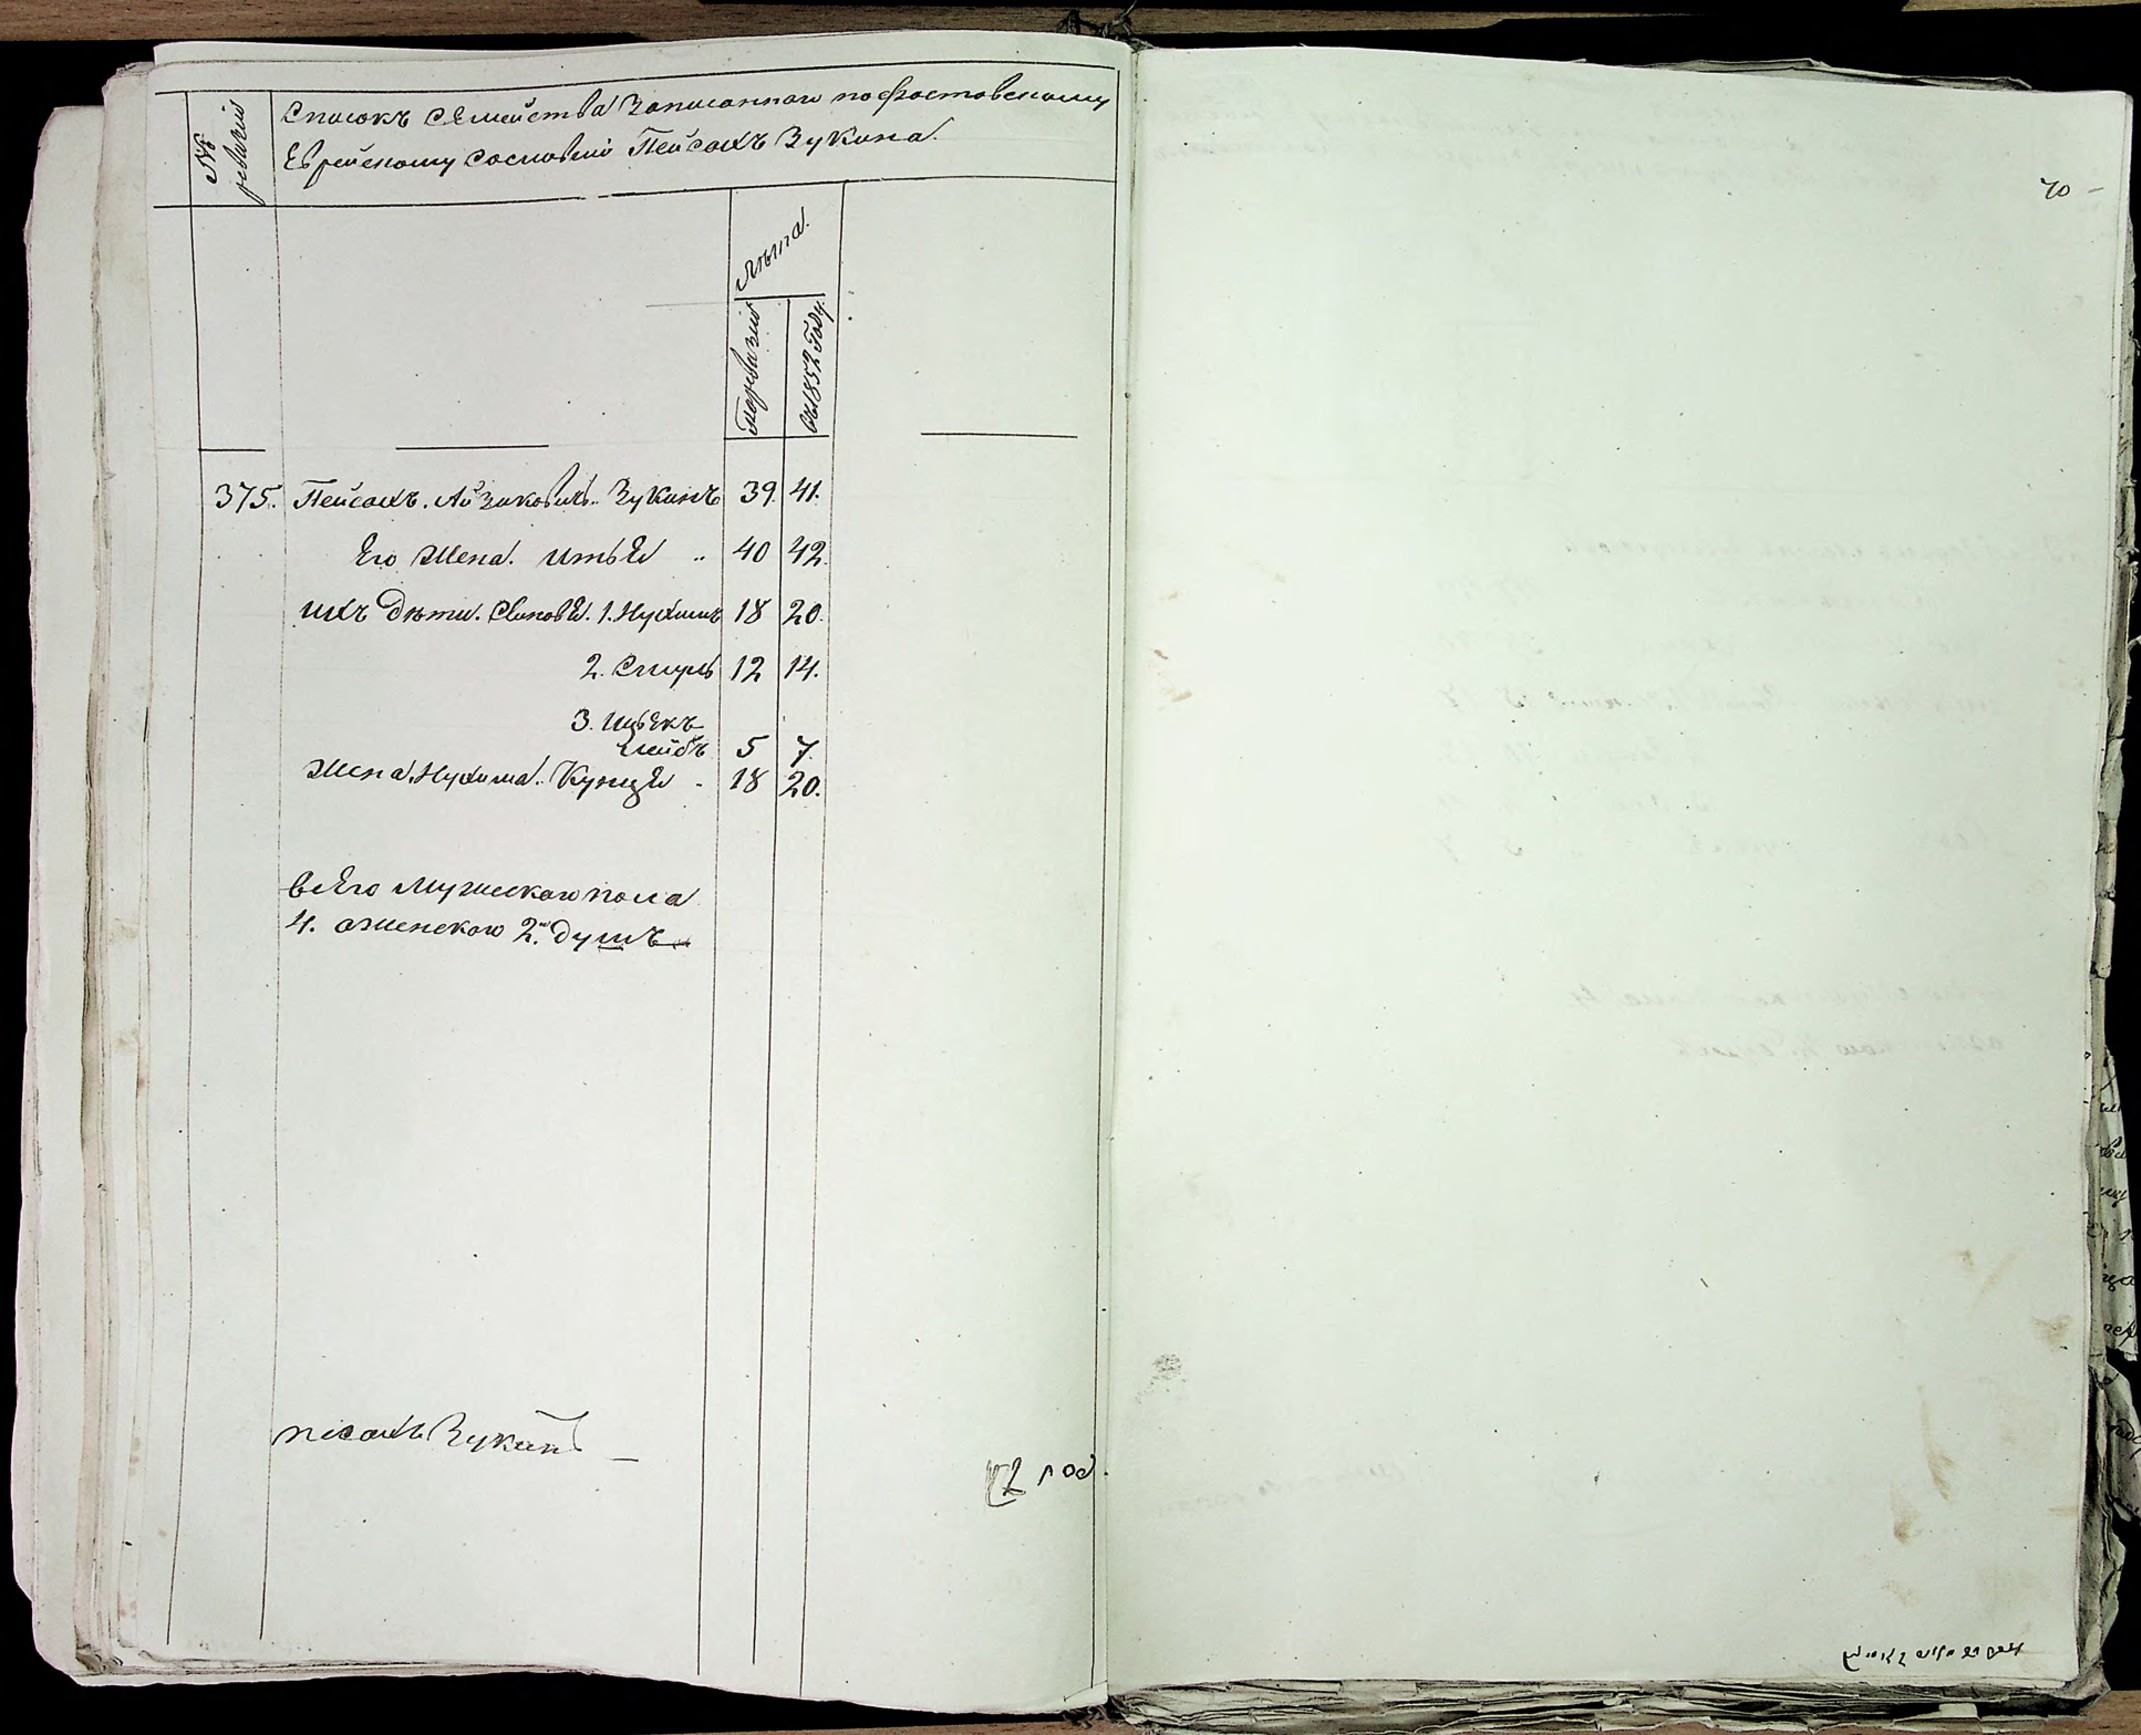 № ревизіи
Списокъ Семейства Записаннаго по Ростовскому
Еврейскому Сословію Пейсахъ Зукина.
70
Лѣта.
По ревизіи
Въ 1852 Году
375. Пейсахъ. Айзиковичъ. Зукинъ 39. 41.
Его Жена. Итъя 40 42.
ихъ Дѣти. Сыновья. 1. Нухимъ 18 20.
2. Смуль 12 14.
3. Ицъекъ
Лейбъ 5 7.
Жена Нухима. Кунця 18 20.
всего Мужескаго пола
4. а женскаго 2. Душъ
песахъ Зукинъ
פסח